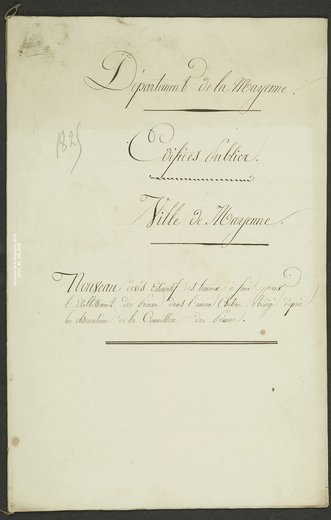 Département de la Mayenne.
1825
Edifices Publics.
Ville de Mayenne.
Nouveau devis estimatif des travaux à faire pour
l'établissement des Prisons dans l'ancien Château, Rédigé d'après
les observations de la Commission des Prisons.